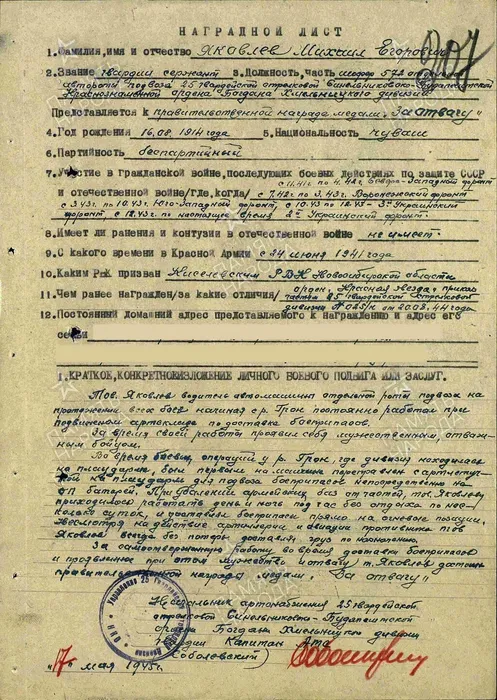 207
НАГРАДНОЙ ЛИСТ
1.Фамилия,имя и отчество Яковлев Михаил Егорович
2.Звание гвардии сержант 3.Должность,часть шофер 572 отдельной
автороты подвоза 25 гвардейской стрелковой Синельниково-Будапештской
Краснознаменной ордена Богдана Хмельницкого дивизии
Представляется к правительственной награде медали „За отвагу"
4.Год рождения 16.08.1914 года 5.Национальность чуваш
6.Партийность беспартийный
7.Участие в гражданской войне,последующих боевых действиях по защите СССР
и отечественной войне/где,когда/
с 11.41 г по 4.42г. Северо-Западной фронт
с 7.42г по 3.43г. Воронежский фронт
с 3.43г. по 10.43г. Юго-Западной фронт, с 10.43 по 12.43 - 3й Украинский
фронт, с 12.43г. по настоящее время 2й Украинский фронт.
8.Имеет ли ранения и контузии в отечественной войне не имеет.
9.С какого времени в Красной Армии с 24 июня 1941 года
10.Каким РВК призван Киселевским РВК Новосибирской области
11.Чем ранее награжден/за какие отличия/ орден „Красная звезда", приказ
частям 25 гвардейской стрелковой
дивизии № 025/н от 20.08.44 года
12.Постоянный домашний адрес представляемого к награждению и адрес его
семьи
1.КРАТКОЕ,КОНКРЕТНОЕ ИЗЛОЖЕНИЕ ЛИЧНОГО БОЕВОГО ПОДВИГА ИЛИ ЗАСЛУГ.
Тов. Яковлев водитель автомашины отдельной роты подвоза на
протяжении всех боев начиная с р. Грон постоянно работал при
подвижном артскладе по доставке боеприпасов.
За время своей работы проявил себя мужественным, отваж-
ным бойцом.
Во время боевых операций у р. Грон, где дивизия находилась
на плацдарме, был первым на машине переправлен с артнагруз-
кой на плацдарм для подвоза боеприпасов непосредственно на
ОП батарей. При удалении армейских баз от частей, тов. Яковлеву
приходилось работать день и ночь под час без отдыха по не-
сколько суток, и доставлял боеприпасы прямо на огневые позиции.
Несмотря на действие артиллерии и авиации противника тов
Яковлев всегда без потерь доставлял груз по назначению.
За самоотверженную работу во время доставки боеприпасов
и проявленные при этом мужество и отвагу т. Яковлев достоин
правительственной награды медали „За отвагу"
Начальник артснабжения 25 гвардейской
стрелковой Синельниково-Будапештской
ордена Богдана Хмельницкого дивизии
гвардии Капитан
(Соболевский)
„17" мая 1945 г.